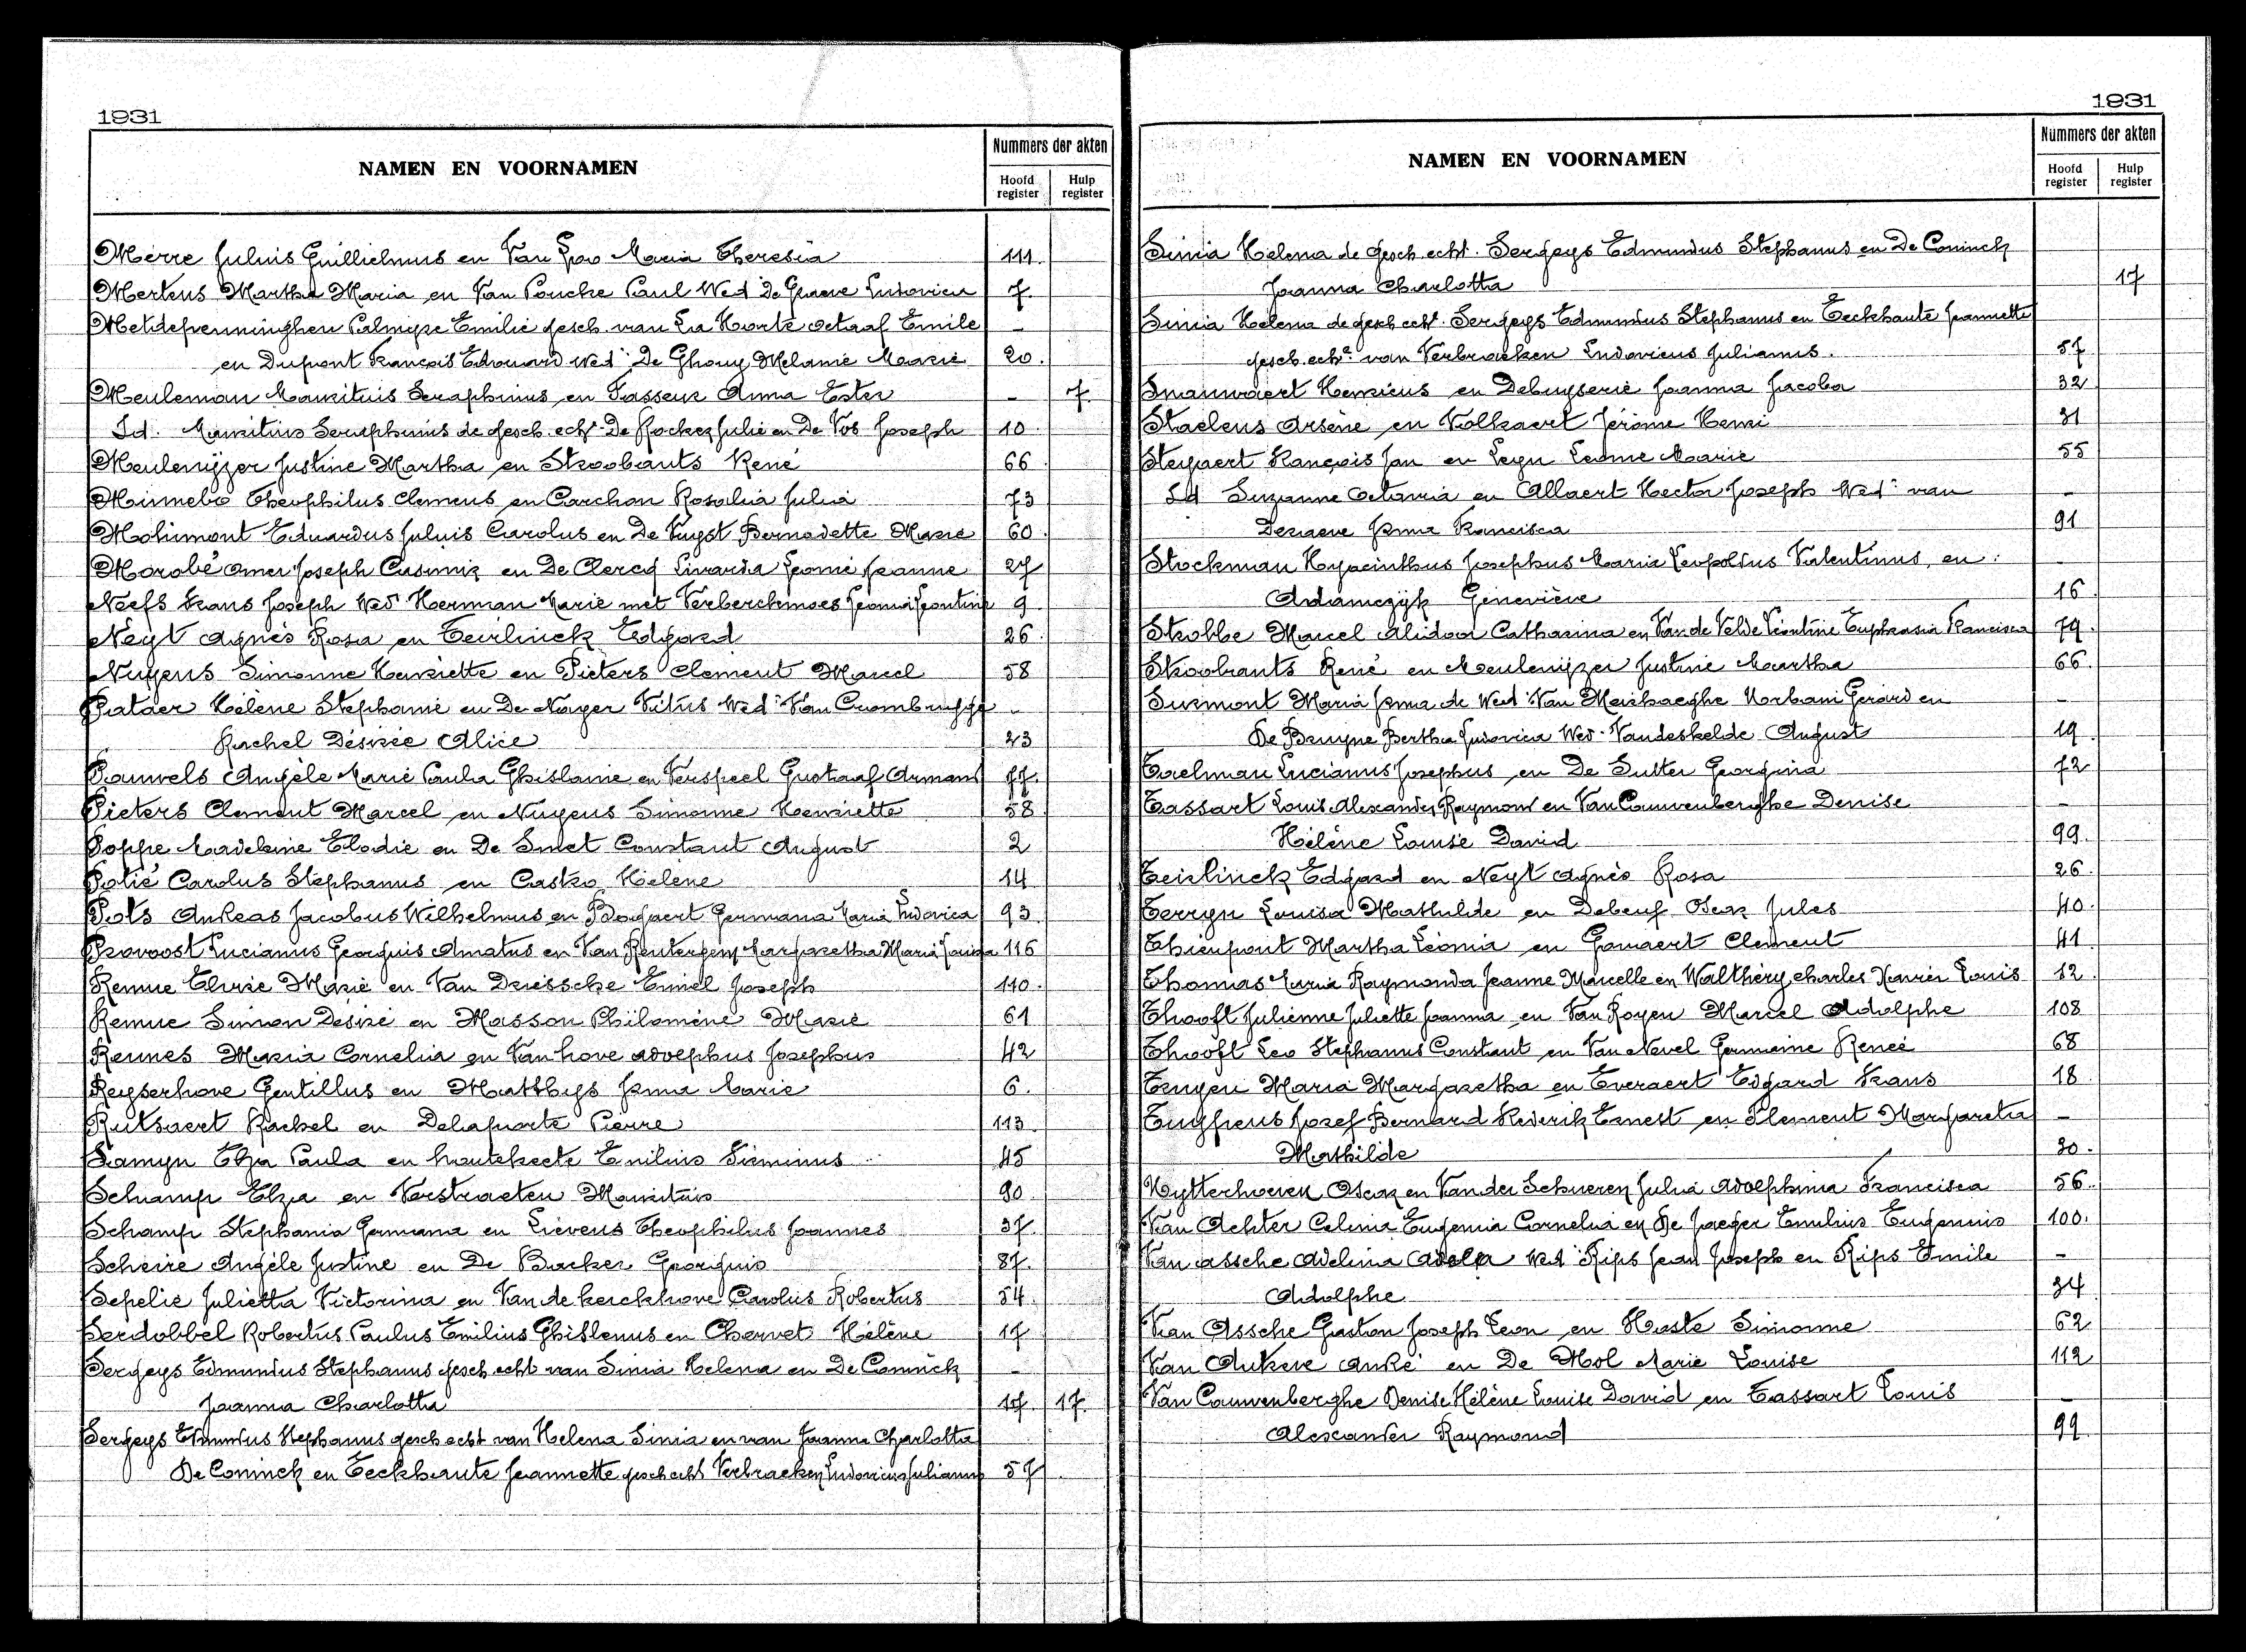 1931
NAMEN EN VOORNAMEN
Nummers der akten
Hoofd register
Hulp register
Merre Julius Guillielmus en Van Maria Theresia 111
Mertens Martha Maria en Van Poucke Paul Wed De Graeve Ludovica 7
Metdepenninghen Palmyre Emilie gesch. van La Horte octaaf Emile -
en Dupont François Edouard wed. De Ghouy Melanie Marie 20
Meuleman Mauritius Seraphinus en Tasseur Anna Ester - 7
Id. Mauritius Seraphinus de gesch. echt. Julie en De Vos Joseph 10
Meulenijzer Justine Martha en Stroobants René 66
Minnebo Theophilus Clemens en Carchon Rosalia Julia 73
Mohimont Eduardus Julius Carolus en De Vuyst Bernadette Marie 60
Morobé omer Joseph Casimir en De Clercq Livarda Leonie Jeanne 27
Neefs Frans Joseph Wed. Herman Marie met Verberckmoes Leonia Leontine 9
Neyt Agnès Rosa en Teirlinck Edgard 26
Nuyens Simonne Henriette en Pieters Clement Marcel 58
Pataer Hélène Stephanie en De Nayer Vitus Wed. Van Crombrugghe -
Rachel Désirée Alice 23
Pauwels Angèle Marie Paula Ghislaine en Verspeel Gustaaf Armand 77
Pieters Clement Marcel en Nuyens Simonne Henriette 58
Poppe Madeleine Elodie en De Smet Constant August 2
Potié Carolus Stephanus en Casko Hélène 14
Pots Andreas Jacobus Wilhelmus en Germana Maria Ludovica 93
Provoost Lucianus Georgius Amatus en Van Renterghem Margaretha Maria Louisa 116
Remue Elvire Marie en Van Driessche Emiel Joseph 110
Remue Simon Désiré en Masson Philomène Marie 61
Rennes Maria Cornelia en Van hove adolphus Josephus 42
Reyserhove Gentillus en Matthys Irma Marie 6
Rutsaert Rachel en Delaporte Pierre 113
Samyn Elza Paula en houtekeete Emilius Firminus 45
Schamp Elza en Verstraeten Mauritius 90
Schamp Stephania Germana en Lievens Theophilus Joannes 37
Scheire Angèle Justine en De Backer Georgius 87
Sepelie Julietta Victorina en Van de kerckhove Carolus Robertus 54
Serdobbel Robertus Paulus Emilius Ghislenus en Chervet Hélène 17
Sergeys Edmundus Stephanus gesch. echt van Sinia Helena en De Coninck -
Joanna Charlotta 17 17
Sergeys Edmundus Stephanus gesch. echt van Helena Sinia en van Joanna Charlotta
De Coninck en Eeckhaute Jeannette gesch. echt Verbraeken Ludovicus Julianus 57
1931
NAMEN EN VOORNAMEN
Nummers der akten
Hoofd register
Hulp register
Sinia Helena de gesch. echt. Sergeys Edmundus Stephanus en De Coninck
Joanna Charlotta 17
Sinia Helena de gesch. echt. Sergeys Edmundus Stephanus en Eeckhaute Jeannette
gesch. echt. van Verbraeken Ludovicus Julianus. 57
Snauwaert Henricus en Debuyserie Joanna Jacoba 32
Staelens Arsène en Volkaert Jérôme Henri 31
Steyaert François Jan en Leyn Leonie Marie 55
Id Suzanne Octavia en Allaert Hector Joseph Wed. van -
Deraeve Irma Francisca 91
Stockman Hyacinthus Josephus Maria Leopoldus Valentinus, en -
Adamczyk Geneviève 16
Strobbe Marcel Alidoor Catharina en Van de Velde Léontine Euphrasia Francisca 79
Stroobants René en Meulenijzer Justine Martha 66
Surmont Maria Irma de Wed. Van Meirhaeghe Norbani Gerard en -
De Bruyne Bertha Ludovica Wed. Vandeskelde August 19
Taelman Lucianus Josephus en De Sutter Georgina 72
Tassart Louis Alexander Raymond en Van Cauwenberghe Denise -
Hélène Louise David 99
Teirlinck Edgard en Neyt Agnès Rosa 26
Terryn Louisa Mathilde en Debeuf Oscar Jules 40
Thienpont Martha Léonia en Gomaert Clement 41
Thomas Maria Raymonda Jeanne Marcelle en Walthéry charles Xavier Louis 12
Thooft Julienne Juliette Joanna en Van Royen Marcel Adolphe 108
Thooft Leo Stephanus Constant en Van Nevel Germaine Renée 68
Truyen Maria Margaretha en Everaert Edgard Frans 18
Tuypens Jozef Bernard Frederik Ernest en Flement Margaretha -
Mathilde 30
Uytterhoeven Oscar en Van der Schueren Julia Adolphina Francisca 56
Van Achter Celina Eugenia Cornelia en De Jaeger Emilius Eugenius 100
Van assche Adelina Wed. Rips Jean Joseph en Rips Emile -
Adolphe 34
Van Assche Gaston Joseph Leon en Haste Simonne 62
Van Ankere André en De Mol Marie Louise 112
Van Cauwenberghe Denise Hélène Louise David en Tassart Louis -
Alexander Raymond 99